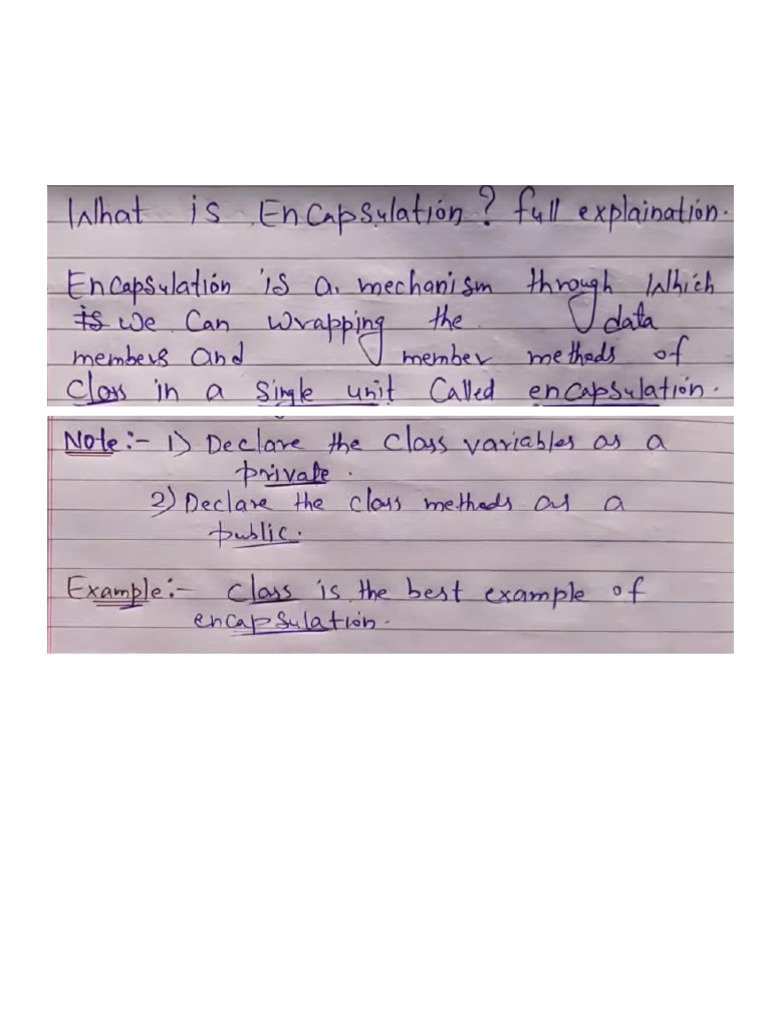 What is Encapsulation? full explaination.
Encapsulation is a mechanism through which
is we can wrapping the data
members and member methods of
class in a single unit called encapsulation.
Note:- 1) Declare the class variables as a
private.
2) Declare the class methods as a
public.
Example:- class is the best example of
encapsulation.